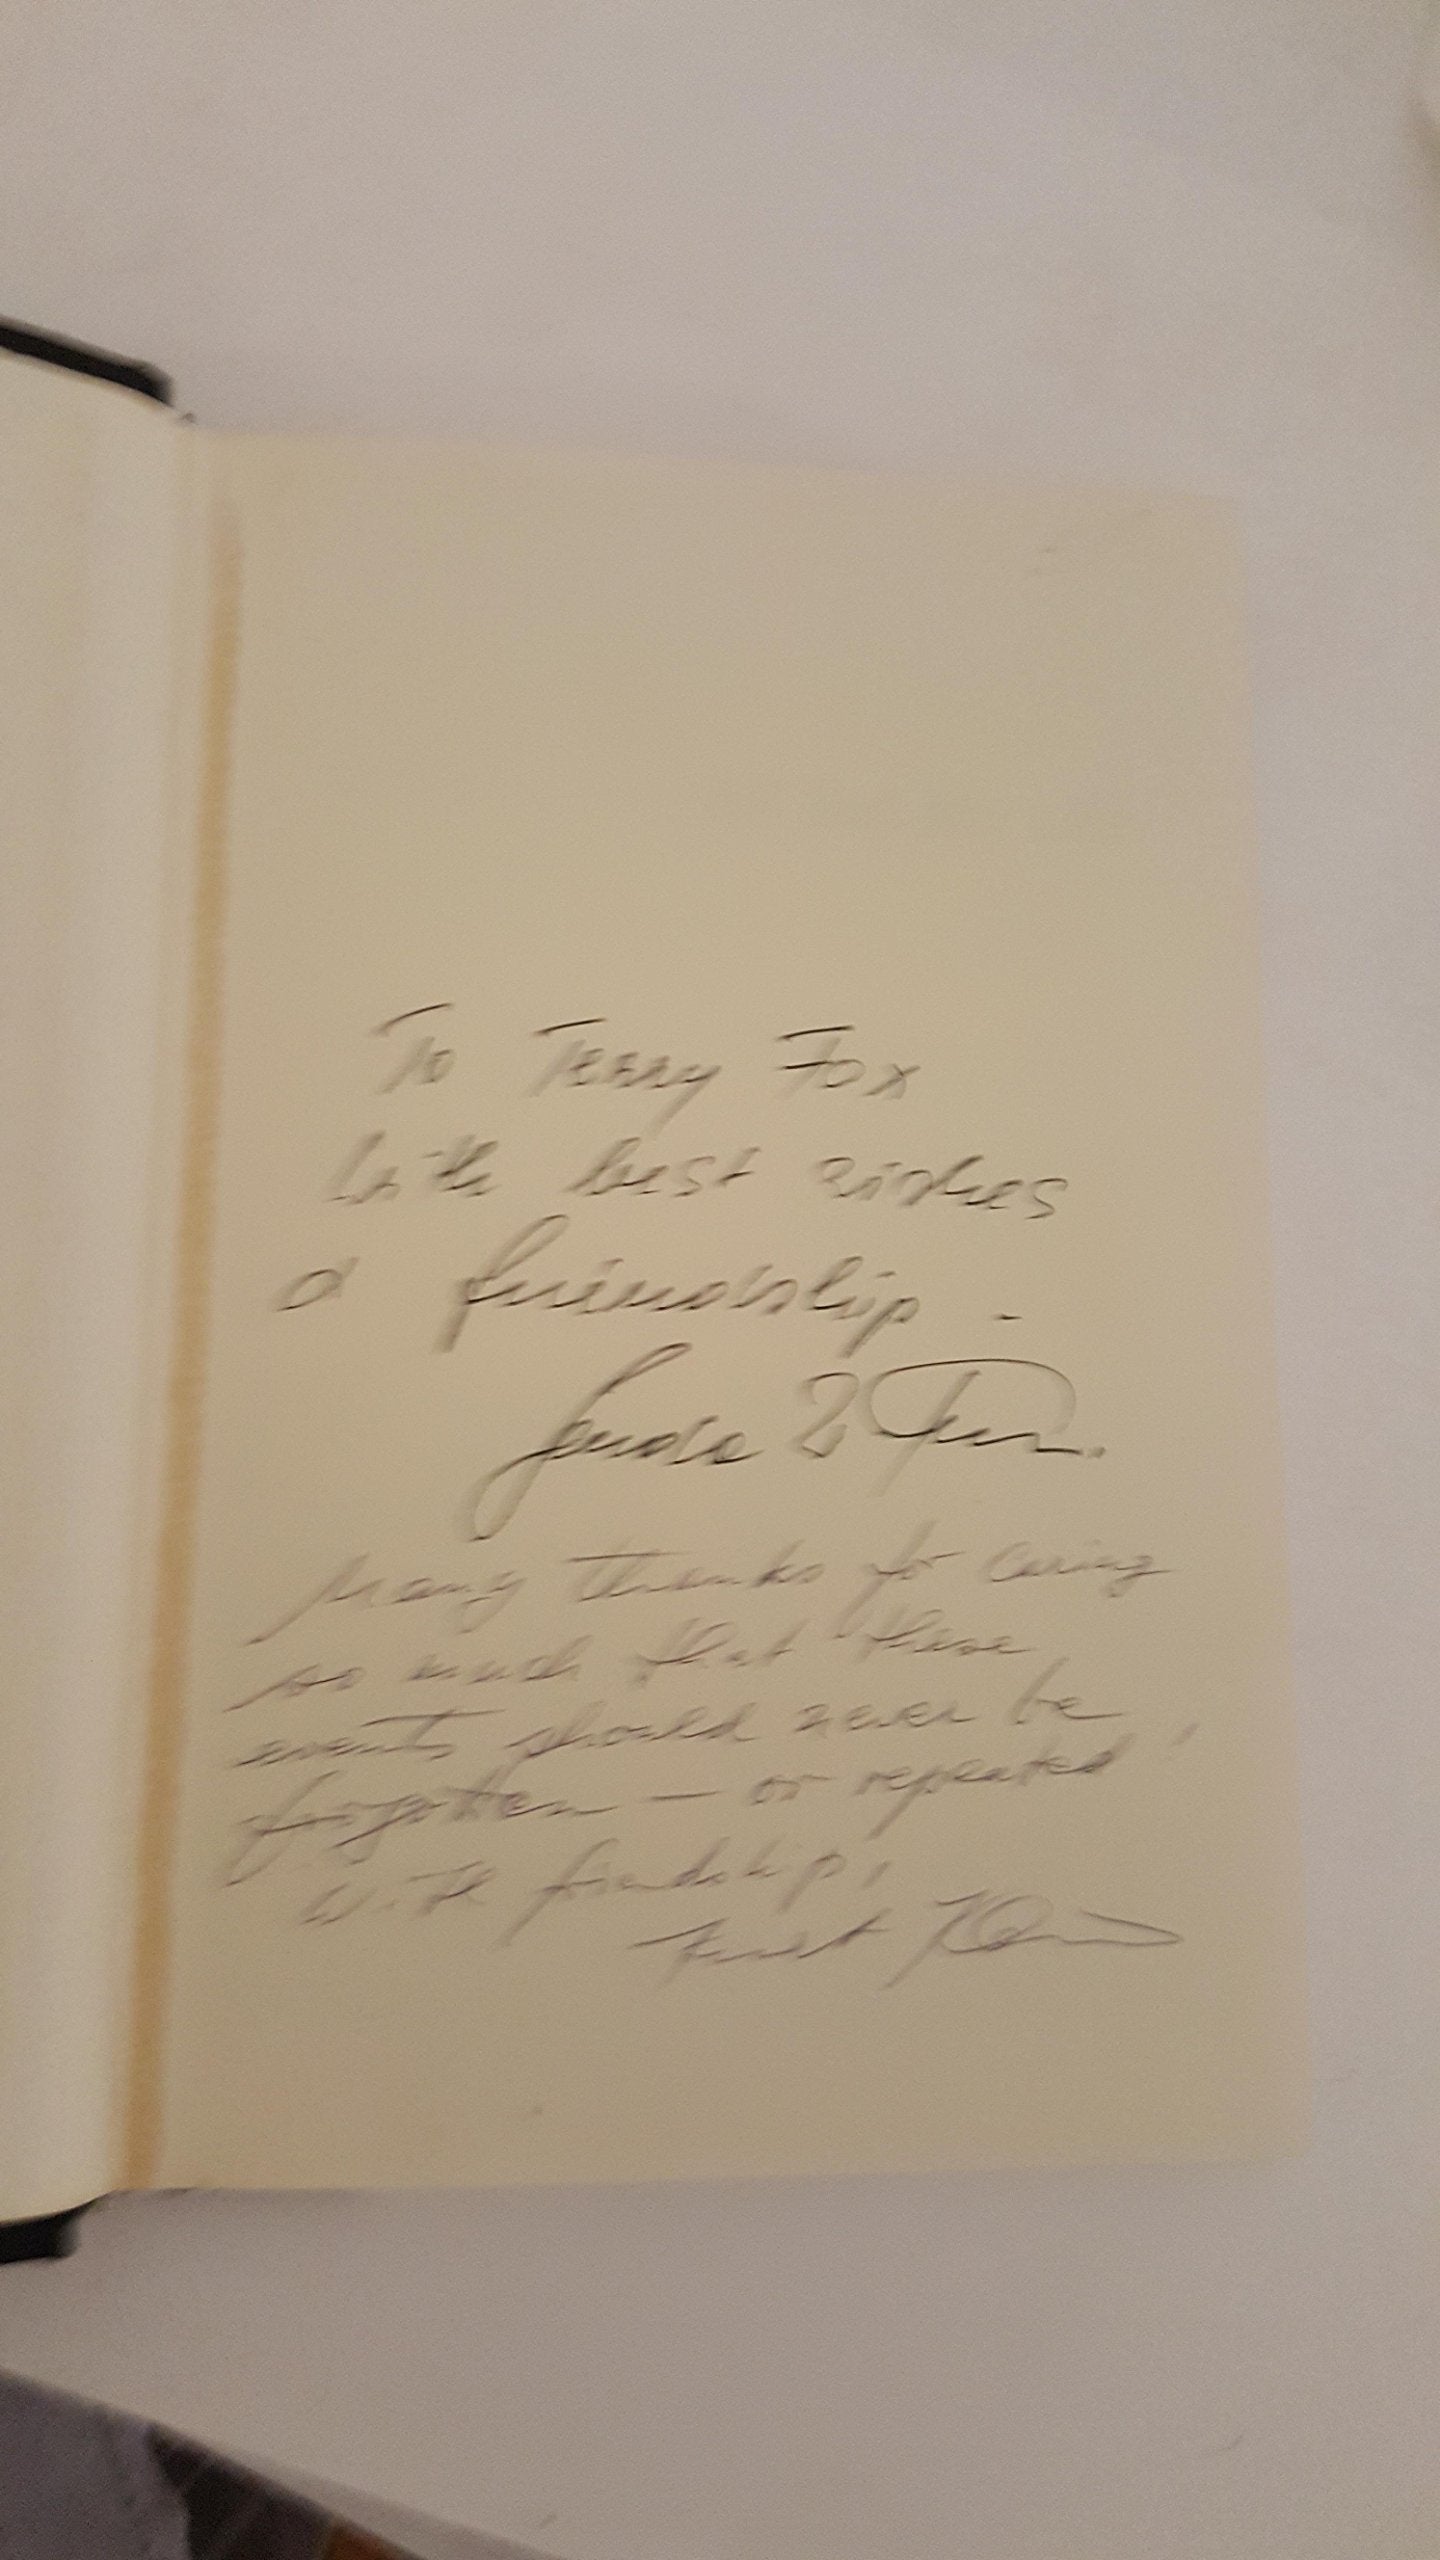 To Terry Fox
With best wishes
& friendship -
Many thanks for caring
so much that these
events should never be
forgotten — or repeated!
With friendship,